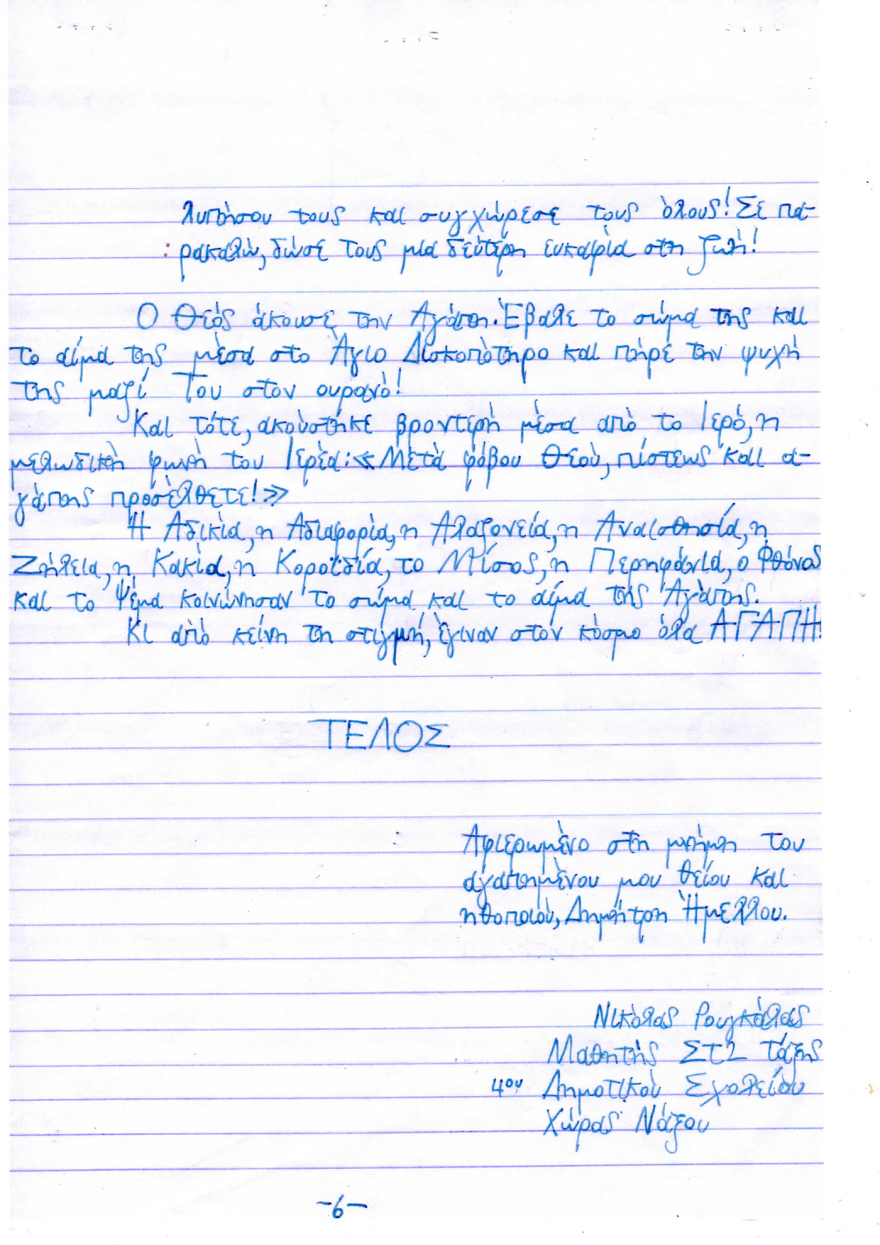 λυπήσου τους και συγχώρεσε τους όλους! Σε πα-
ρακαλώ, δώσε τους μια δεύτερη ευκαιρία στη ζωή!
Ο Θεός άκουσε την Αγάπη. Έβαλε το σώμα της και
το αίμα της μέσα στο Άγιο Δισκοπότηρο και πήρε την ψυχή
της μαζί Του στον ουρανό!
Και τότε, ακούστηκε βροντερή μέσα από το Ιερό, η
μελωδική φωνή του Ιερέα: «Μετά φόβου Θεού, πίστεως και α-
γάπης προσέλθετε!»
Η Αδικία, η Αδιαφορία, η Αλαζονεία, η Αναισθησία, η
Ζήλεια, η Κακία, η Κοροϊδία, το Μίσος, η Περηφάνια, ο Φθόνος
και το Ψέμα κοινώνησαν το σώμα και το αίμα της Αγάπης.
Κι από κείνη τη στιγμή, έγιναν στον κόσμο όλα ΑΓΑΠΗ!
ΤΕΛΟΣ
Αφιερωμένο στη μνήμη του
αγαπημένου μου θείου και
ηθοποιού, Δημήτρη Ήμελλου.
Νικόλας Ρουγκάλας
Μαθητής ΣΤ2 τάξης
4ου Δημοτικού Σχολείου
Χώρας Νάξου
-6-